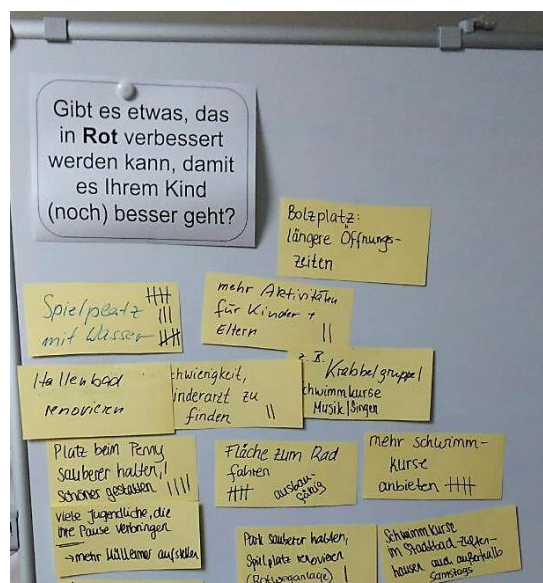 Gibt es etwas, das
in Rot verbessert
werden kann, damit
es Ihrem Kind
(noch) besser geht?
Bolzplatz:
längere Öffnungs-
zeiten
Spielplatz
mit Wasser
mehr Aktivitäten
für Kinder +
Eltern
z.B. Krabbelgruppe
chwimmkurse
Musik/Singen
Hallenbad
renovieren
chwierigkeit,
inderarzt zu
finden
Platz beim Penny
sauberer halten,
schöner gestalten
Fläche zum Rad
fahren
ausbau-
fähig
mehr schwimm-
kurse
anbieten
viele Jugendliche, die
ihre Pause verbringen
→ mehr Mülleimer aufstellen
Park sauberer halten,
Spielplatz renovieren
(Rotweganlage)
Schwimmkurse
im Stadtbad Zuffen-
hausen auch außerhalb
Samstags